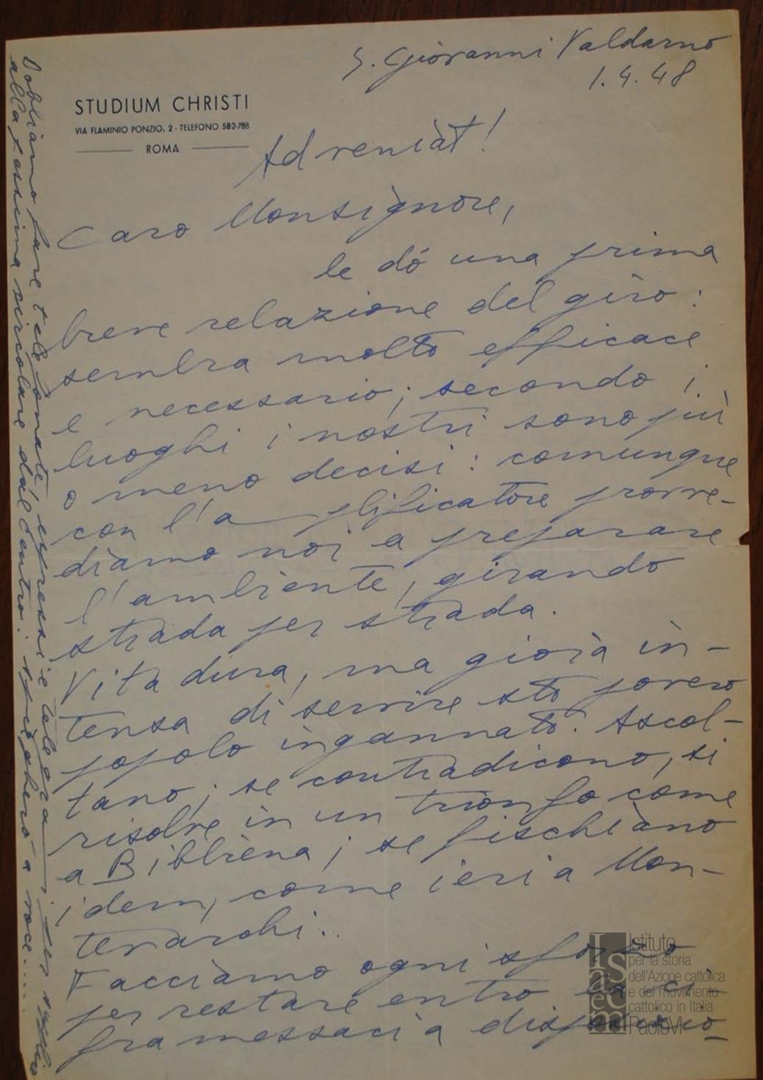 S. Giovanni Valdarno
1.4.48
STUDIUM CHRISTI
VIA FLAMINIO PONZIO, 2 - TELEFONO 582-788
ROMA
Adveniàt!
Caro Monsignore,
le dó una prima
breve relazione del giro:
sembra molto efficace
e necessario; secondo i
luoghi i nostri sono più
o meno decisi: comunque
con l'a plificatore provve-
diamo noi a preparare
l'ambiente, girando
strada per strada.
Vita dura, ma gioia in-
tensa di servire sto povero
popolo ingannato. Ascol-
tano; se contradicono, si
risolve in un trionfo come
a Bibbiena; se fischiano
idem, come ieri a Mon-
tevarchi..
Facciamo ogni sforzo
per restare entro la ci-
fra messaci a disposizio-
Dobbiamo fare telefonate, espressi e telegrammi per
alla circolare dal Centro: spiegherò a voce.....
Istituto
per la storia
dell'Azione cattolica
e del movimento
cattolico in Italia
Paolo VI